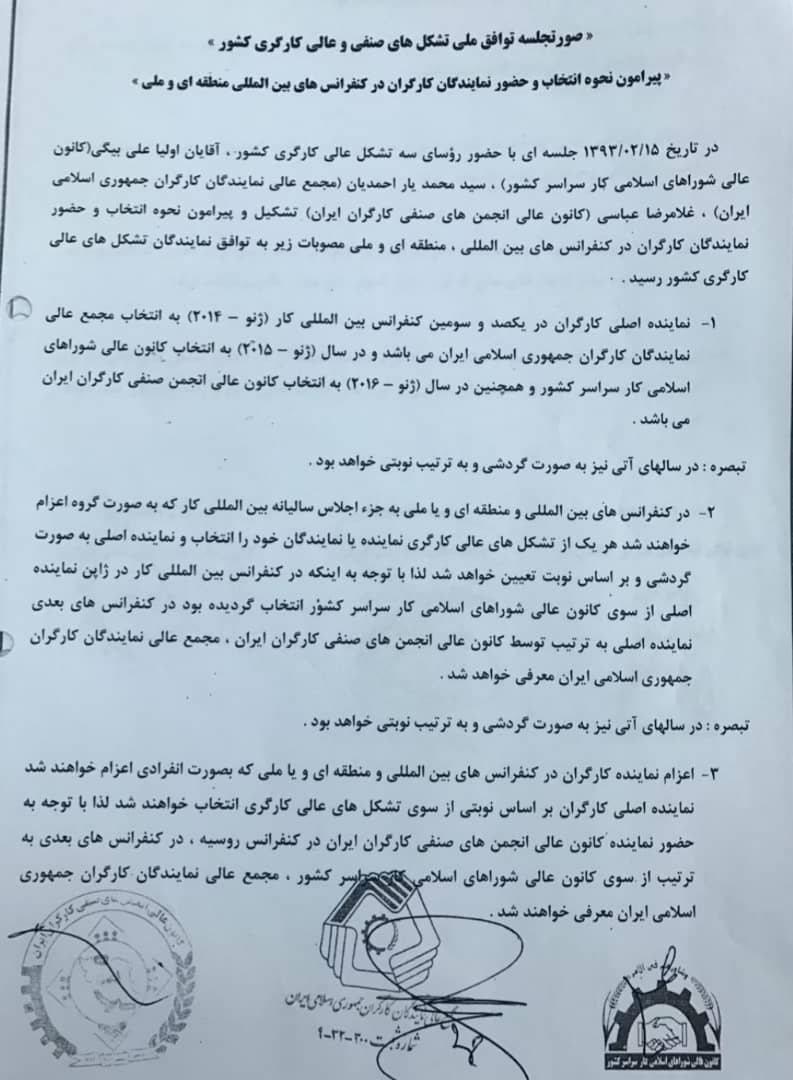 « صورتجلسه توافق ملی تشکل های صنفی و عالی کارگری کشور »
« پیرامون نحوه انتخاب و حضور نمایندگان کارگران در کنفرانس های بین المللی منطقه ای و ملی »
در تاریخ ۱۳۹۳/۰۲/۱۵ جلسه ای با حضور رؤسای سه تشکل عالی کارگری کشور ، آقایان اولیا علی بیگی(کانون
عالی شوراهای اسلامی کار سراسر کشور) ، سید محمد یار احمدیان (مجمع عالی نمایندگان کارگران جمهوری اسلامی
ایران) ، غلامرضا عباسی (کانون عالی انجمن های صنفی کارگران ایران) تشکیل و پیرامون نحوه انتخاب و حضور
نمایندگان کارگران در کنفرانس های بین المللی ، منطقه ای و ملی مصوبات زیر به توافق نمایندگان تشکل های عالی
کارگری کشور رسید .
۱- نماینده اصلی کارگران در یکصد و سومین کنفرانس بین المللی کار (ژنو – ۲۰۱۴) به انتخاب مجمع عالی
نمایندگان کارگران جمهوری اسلامی ایران می باشد و در سال (ژنو – ۲۰۱۵) به انتخاب کانون عالی شوراهای
اسلامی کار سراسر کشور و همچنین در سال (ژنو – ۲۰۱۶) به انتخاب کانون عالی انجمن صنفی کارگران ایران
می باشد .
تبصره : در سالهای آتی نیز به صورت گردشی و به ترتیب نوبتی خواهد بود .
۲- در کنفرانس های بین المللی و منطقه ای و یا ملی به جزء اجلاس سالیانه بین المللی کار که به صورت گروه اعزام
خواهند شد هر یک از تشکل های عالی کارگری نماینده یا نمایندگان خود را انتخاب و نماینده اصلی به صورت
گردشی و بر اساس نوبت تعیین خواهد شد لذا با توجه به اینکه در کنفرانس بین المللی کار در ژاپن نماینده
اصلی از سوی کانون عالی شوراهای اسلامی کار سراسر کشور انتخاب گردیده بود در کنفرانس های بعدی
نماینده اصلی به ترتیب توسط کانون عالی انجمن های صنفی کارگران ایران ، مجمع عالی نمایندگان کارگران
جمهوری اسلامی ایران معرفی خواهد شد .
تبصره : در سالهای آتی نیز به صورت گردشی و به ترتیب نوبتی خواهد بود .
۳- اعزام نماینده کارگران در کنفرانس های بین المللی و منطقه ای و یا ملی که بصورت انفرادی اعزام خواهند شد
نماینده اصلی کارگران بر اساس نوبتی از سوی تشکل های عالی کارگری انتخاب خواهند شد لذا با توجه به
حضور نماینده کانون عالی انجمن های صنفی کارگران ایران در کنفرانس روسیه ، در کنفرانس های بعدی به
ترتیب از سوی کانون عالی شوراهای اسلامی کار سراسر کشور ، مجمع عالی نمایندگان کارگران جمهوری
اسلامی ایران معرفی خواهند شد .
کانون عالی انجمن های صنفی کارگران ایران
نمایندگان کارگران جمهوری اسلامی ایران
شماره ثبت ۳۰۰-۳۲-۹
کانون عالی شوراهای اسلامی کار سراسر کشور